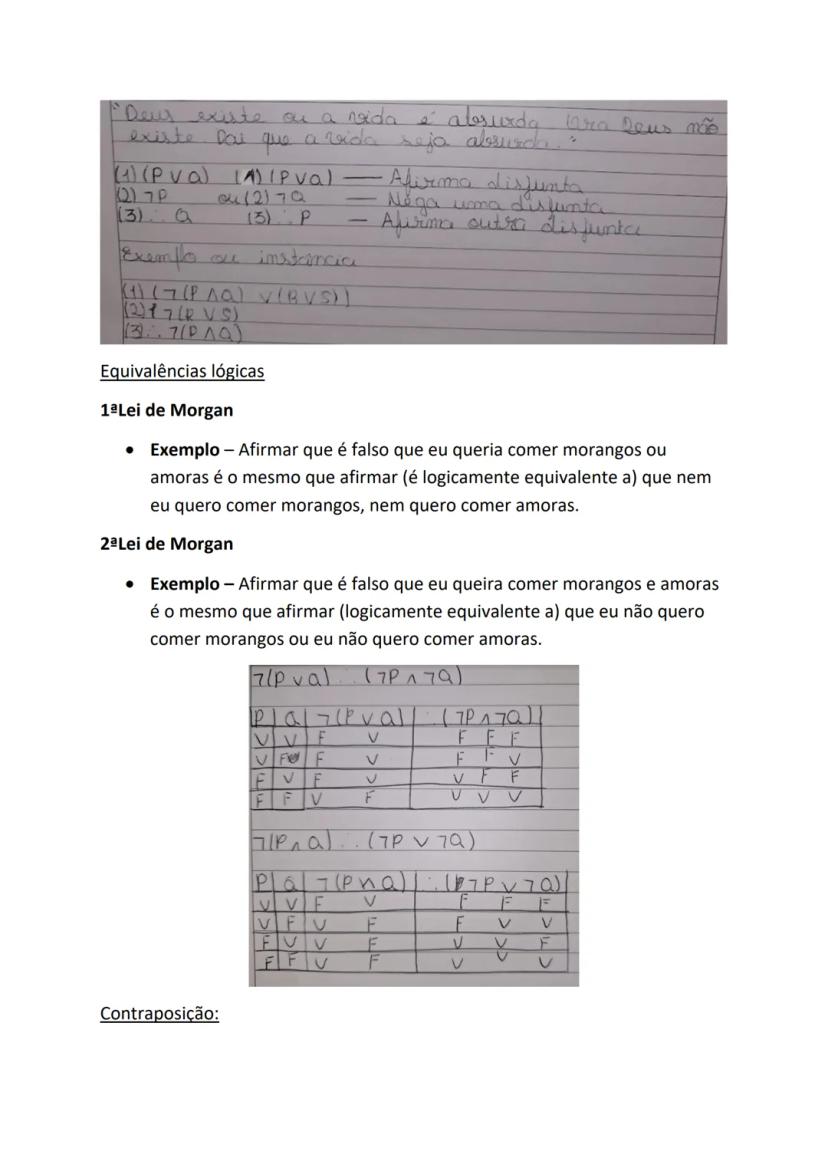 "Deus existe ou a vida é absurda. Ora Deus não
existe. Daí que a vida seja absurda."
(1) (P v Q) (1) (P v Q) — Afirma disjunta
(2) ¬P ou (2) ¬Q — Nega uma disjunta
(3) ∴ Q (3) ∴ P — Afirma outra disjunta
Exemplo ou instância
(1) (¬(P ∧ Q) v (R v S))
(2) ¬(R v S)
(3) ∴ ¬(P ∧ Q)
Equivalências lógicas
1ªLei de Morgan
• Exemplo – Afirmar que é falso que eu queria comer morangos ou
amoras é o mesmo que afirmar (é logicamente equivalente a) que nem
eu quero comer morangos, nem quero comer amoras.
2ªLei de Morgan
• Exemplo – Afirmar que é falso que eu queira comer morangos e amoras
é o mesmo que afirmar (logicamente equivalente a) que eu não quero
comer morangos ou eu não quero comer amoras.
¬(P v Q) ∴ (¬P ∧ ¬Q)
P Q ¬(P v Q) ∴ (¬P ∧ ¬Q)
V V F V F F F
V F F V F F V
F V F V V F F
F F V F V V V
¬(P ∧ Q) ∴ (¬P v ¬Q)
P Q ¬(P ∧ Q) ∴ (¬P v ¬Q)
V V F V F F F
V F V F F V V
F V V F V V F
F F V F V V V
Contraposição: